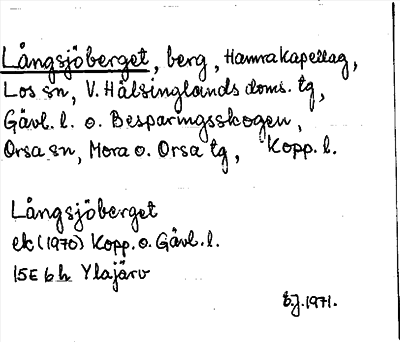 Långsjöberget, berg, Hamrakapellag,
Los sn, V. Hälsinglands doms. tg,
Gävl. l. o. Besparingsskogen,
Orsa sn, Mora o. Orsa tg, Kopp. l.
Långsjöberget
ek (1970) Kopp. o. Gävl. l.
15E 6 h Ylajärv
S.J. 1971.